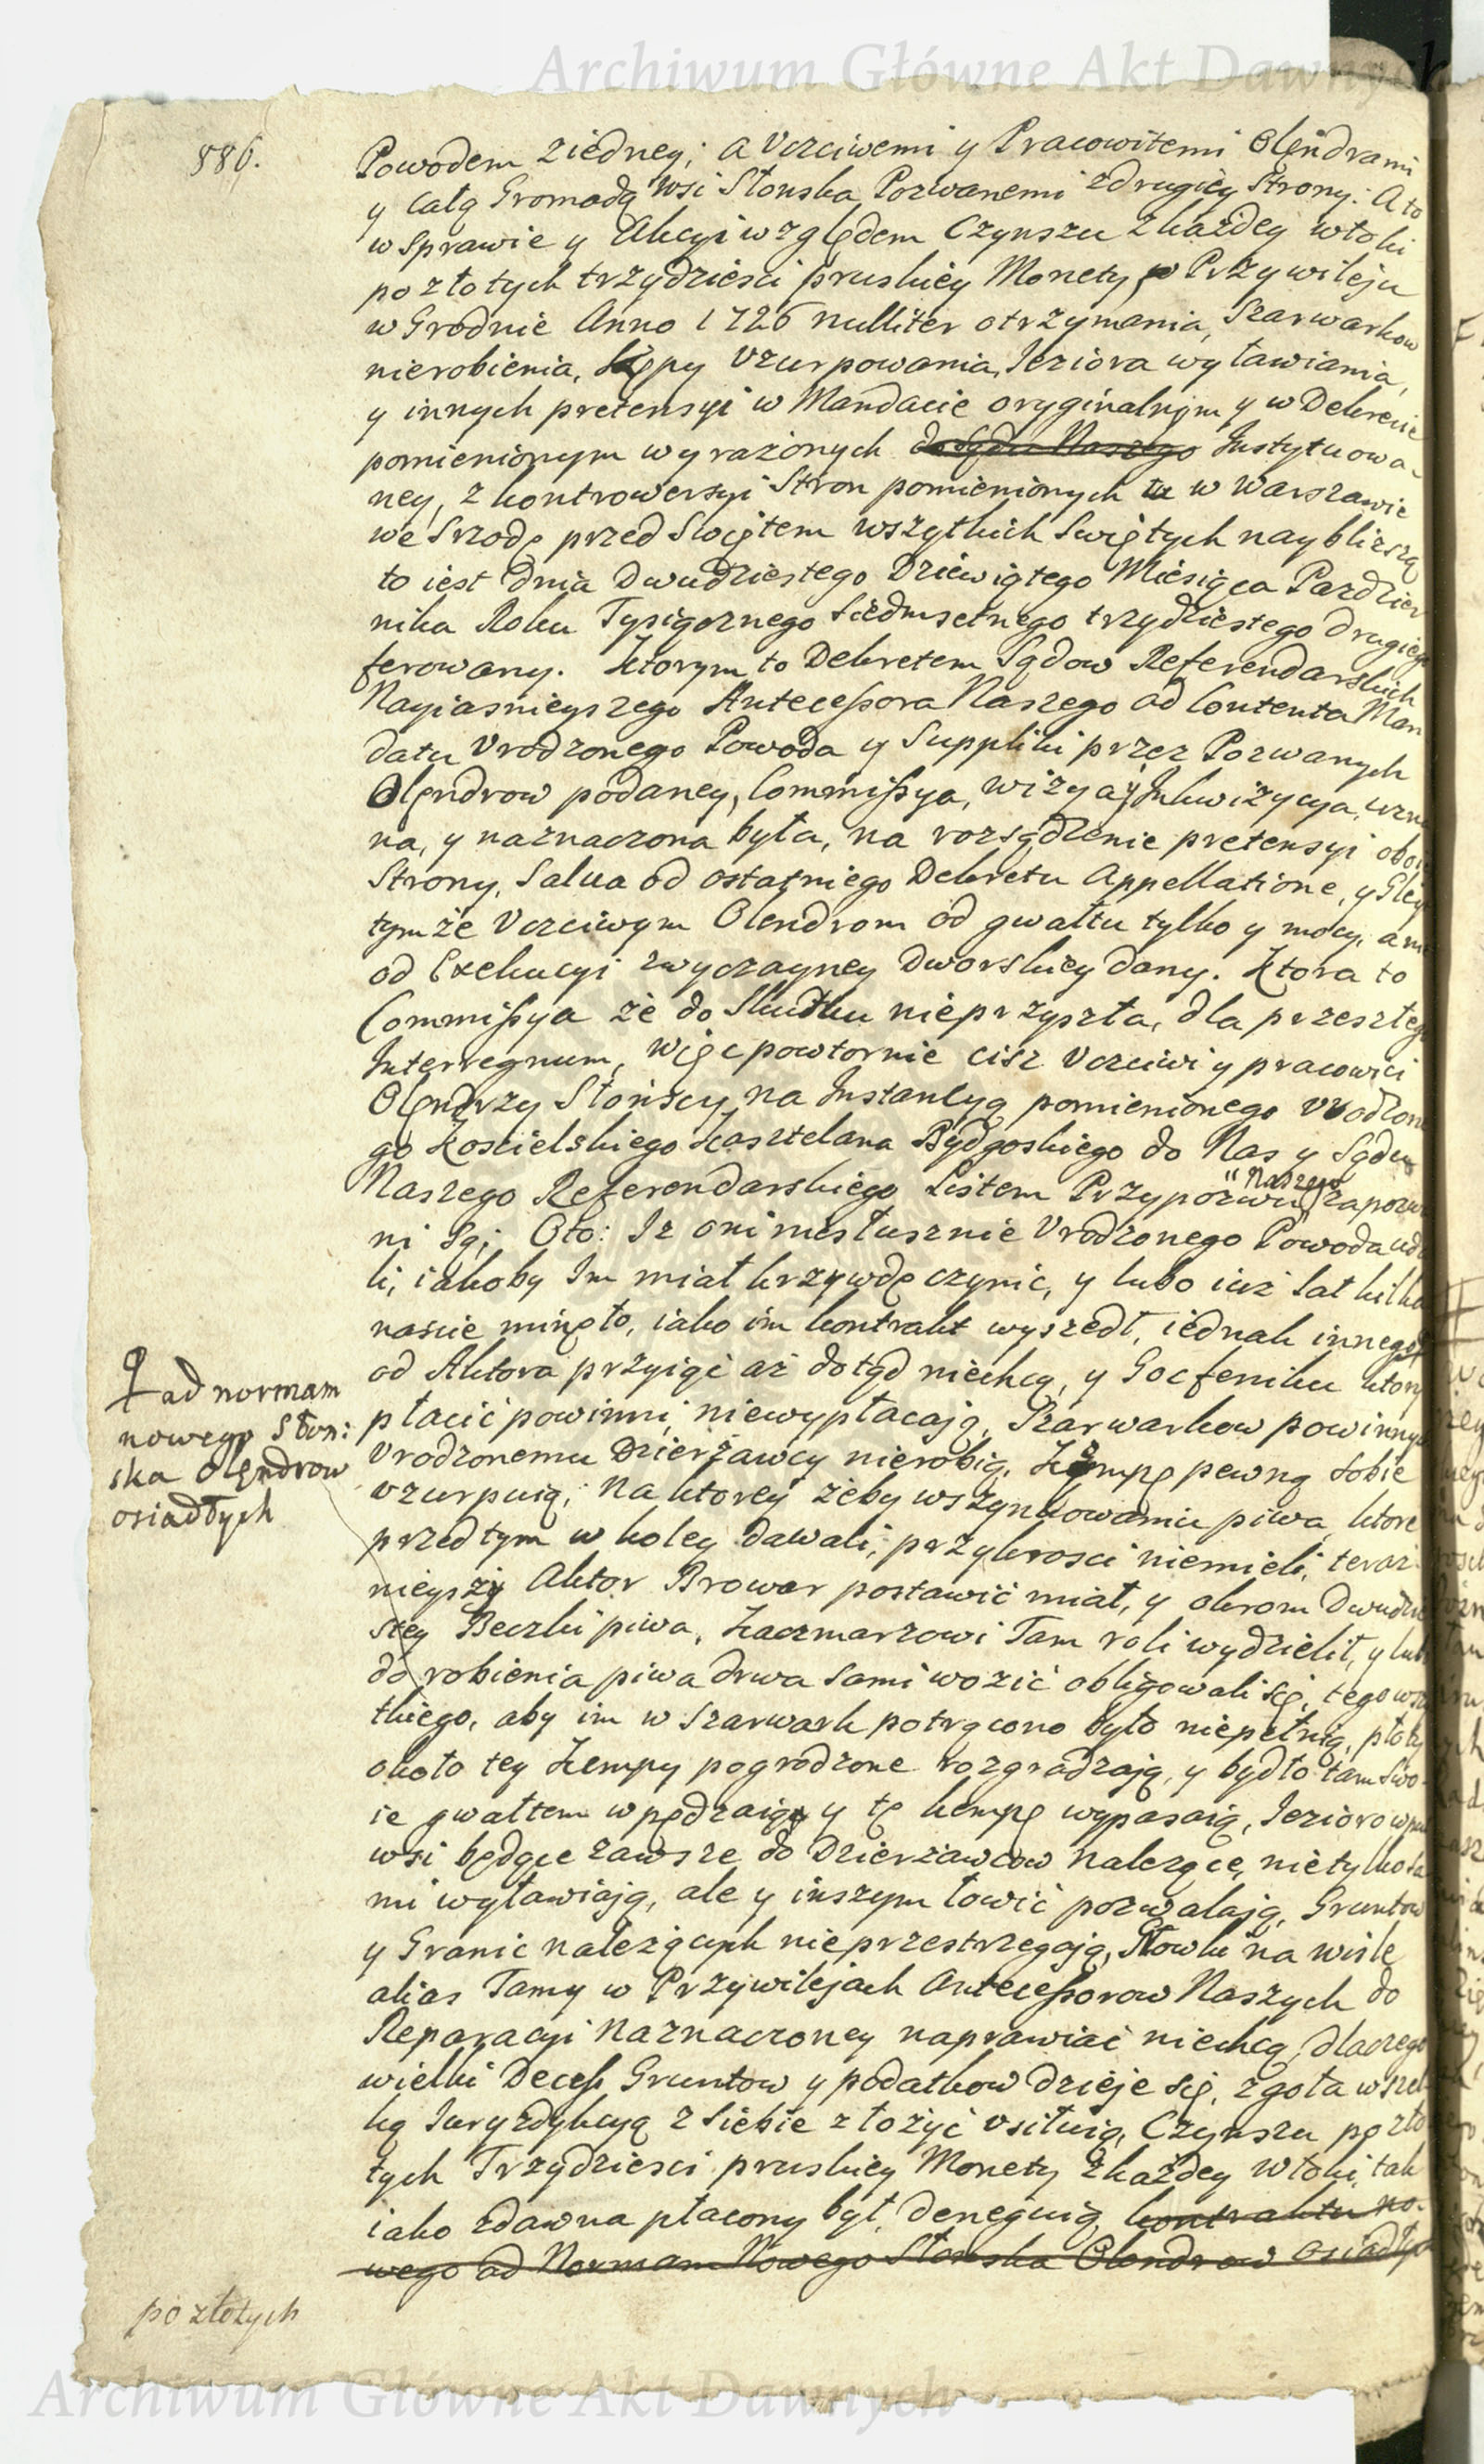 Archiwum Główne Akt Dawnych
886.
Powodem ziedney; a Vczciwemi y Pracowitemi Olęndrami
y całą Gromadą wsi Słonska Pozwanemi zdrugiey Strony: A to
w Sprawie y Akcyi względem Czynszu z każdey włoki
po złotych trzydziesci pruskiey Monety, Przywileju
w Grodnie Anno 1726 nulliter otrzymania, Szarwarkow
nierobienia, Kępy Vzurpowania, Jeziora wyławiania,
y innych pretensyi w Mandacie oryginalnym y w Dekrecie
pomienionym wyrażonych do Sądu Naszego Instytuowa
ney, z kontrowersyi Stron pomienionych w Warszawie
we Srzodę przed Swiętem wszytkich Swiętych naybliższą
to iest Dnia Dwudziestego Dziewiątego Miesiąca Pazdzier
nika Roku Tysiącznego Siedmsetnego trzydziestego drugiego
ferowany. Ktorym to Dekretem Sądow Referendarskich
Nayiasnieyszego Antecessora Naszego od Contenta Man
datu Vrodzonego Powoda y Suppliki przez Pozwanych
Olęndrow podaney, Commissya, wizya y Inkwizycya,
na, y naznaczona była, na rozsądzenie pretensyi
Strony, Salva od ostatniego Dekretu Appellatione, y Gley
tymże Vczciwym Olendrom od gwałtu tylko y mocy, a nie
od Exekucyi zwyczayney Dworskiey dany. Ktora to
Commissya że do Skutku nieprzyszła, dla przeszłego
Interregnum, więc powtornie cisz Vczciwi y pracowici
Olęndrzy Słońscy na Instancyą pomienionego Vrodzone
go Koscielskiego Kasztelana Bydgoskiego do Nas y Sądu
Naszego Referendarskiego Listem Przypozwu Naszego zapozwa
ni są; Oto: Iż oni niesłusznie Vrodzonego Powoda
li, iakoby Im miał krzywdę czynic, y lubo iuż lat kilka
nascie minęło, iako im kontrakt wyszedł, iednak innego
od Aktora przyiąć aż dotąd niechcą, y Gocfeniku ktory
płacić powinni, niewypłacają, Szarwarkow powinnych
Vrodzonemu Dzierżawcy nierobią, Kępę pewną sobie
vzurpuią; Na ktorey żeby wszynkowaniu piwa, ktore
przedtym w koley dawali, przykrosci niemieli, teraz
nieyszy Aktor Browar postawić miał, y okrom Dwudzie
stey Beczki piwa, Kaczmarzowi Tam roli wydzielił, y lubo
do robienia piwa drwa sami wozić obligowali się, tego wszy
tkiego, aby im w Szarwark potrącono było niepełnią, płoty
około tey Kempy pogrodzone rozgradzają, y bydło tam swo
ie gwałtem wpędzaią y tę kempę wypasaią, Jezioro
wsi będące zawsze do Dzierżawcow należące, nietylko sa
mi wyławiają, ale y inszym łowić pozwalają, Gruntow
y Granic należących nieprzestrzegają, Głowki na wisle
alias Tamy w Przywilejach Antecessorow Naszych do
Reparacyi Naznaczoney naprawiać niechcą, dlaczego
wielki Decess Gruntow y podatkow dzieje się, zgoła wszel
ką Juryzdykcyą z Siebie złożyć vsiłuią, Czynszu po zło
tych Trzydziesci pruskiey Monety z każdey włoki, tak
iako zdawna płacony był, deneguią, kontraktu no-
wego ad Normam Nowego Słonska Olendrow osiadłych
ad normam
nowego Słoń:
ska Olęndrow
osiadłych
po złotych
Archiwum Główne Akt Dawnych